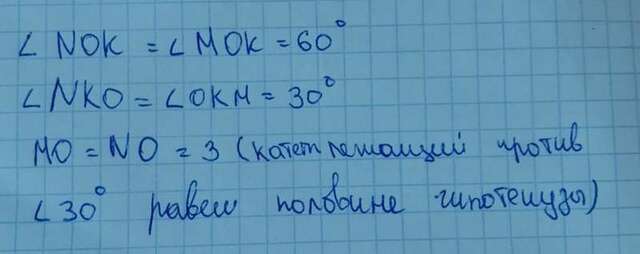 ∠ NOK = ∠ MOK = 60°
∠ NKO = ∠ OKM = 30°
MO = NO = 3 (катет лежащий против
∠ 30° равен половине гипотенузы)